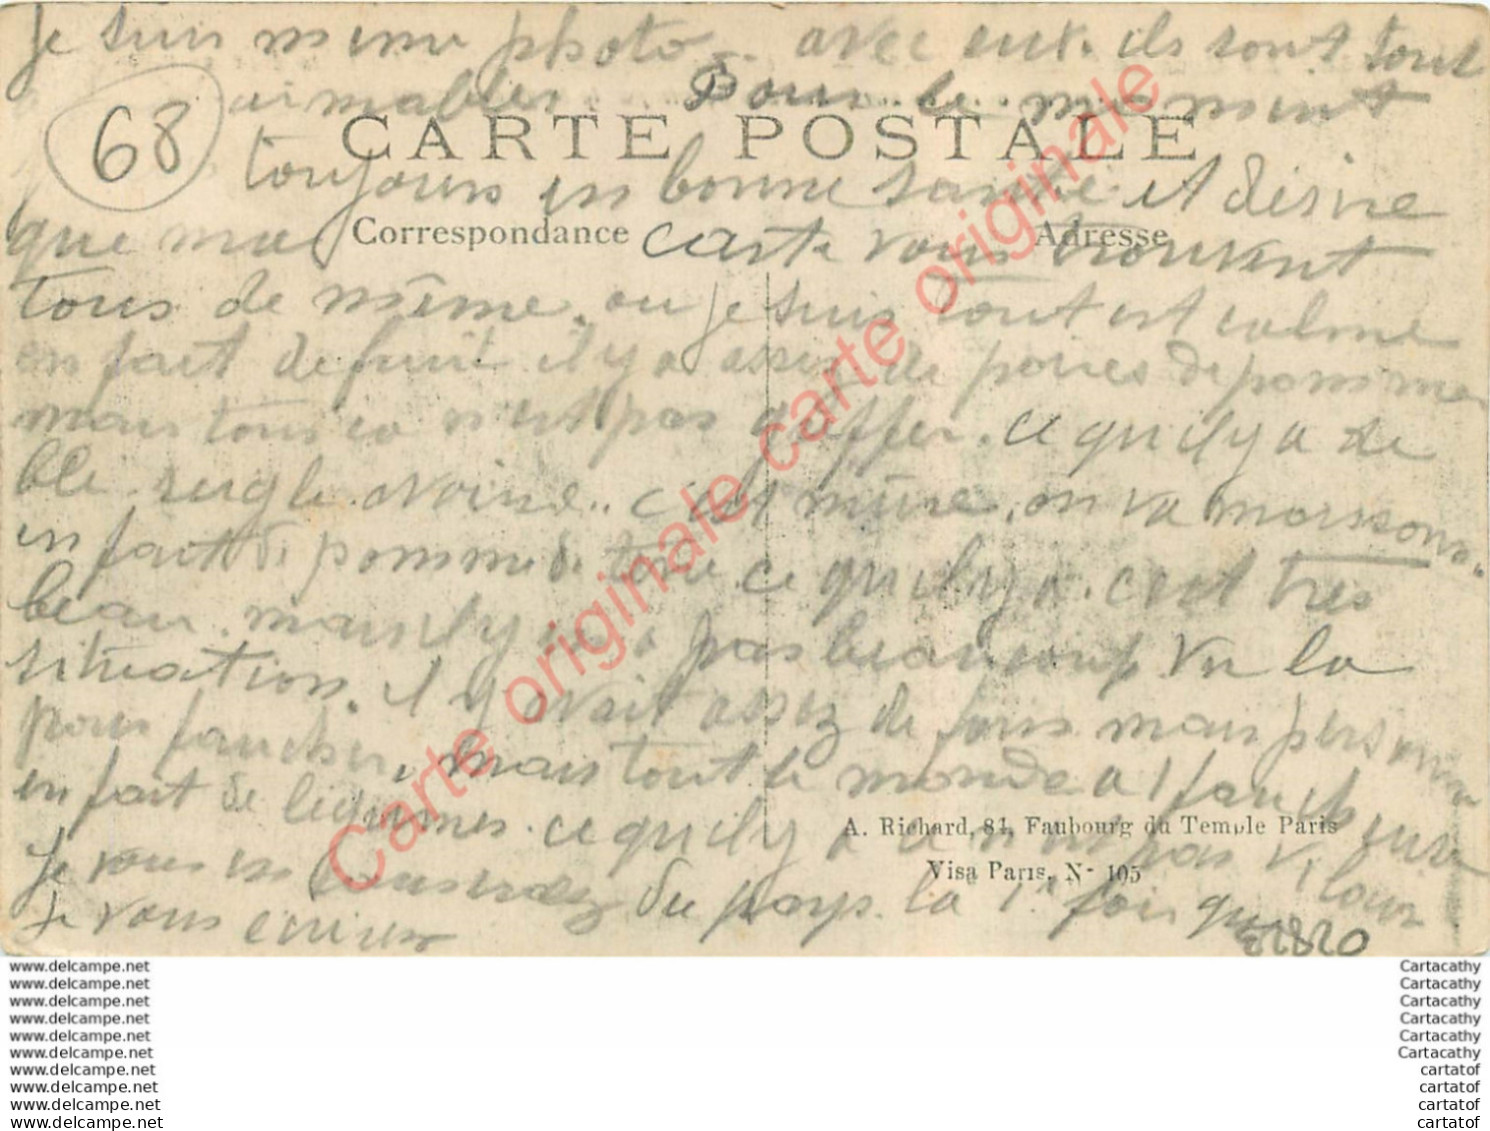 Je suis même photo.. avec eux. ils sont tout
68
aimables Pour le moment
CARTE POSTALE
toujours en bonne santée et désire
Correspondance
Adresse
que ma carte vous trouvent
tous de même. ou je suis tout est calme
en fait de fruit il y a assez de poires de pomme
mais tout ca n'est pas greffer. ce qu'il y a de
blé. seigle. avoine.. c'est mûre. on va moissonner.
en fait de pomme de terre ce qu'il y a. c'est très
beau. mais il y en a pas beaucoup vu la
situation. il y avait assez de foins mais personne
pour faucher, mais tout le monde a
en fait de légumes. ce qu'il y a ce n'est pas
A. Richard, 84, Faubourg du Temple Paris
Visa Paris, N- 105
je vous en du pays. la 1er fois que
je vous écrirez
52820
Carte originale carte originale carte originale
www.delcampe.net
www.delcampe.net
www.delcampe.net
www.delcampe.net
www.delcampe.net
www.delcampe.net
www.delcampe.net
www.delcampe.net
www.delcampe.net
www.delcampe.net
Cartacathy
Cartacathy
Cartacathy
Cartacathy
Cartacathy
Cartacathy
cartatof
cartatof
cartatof
cartatof